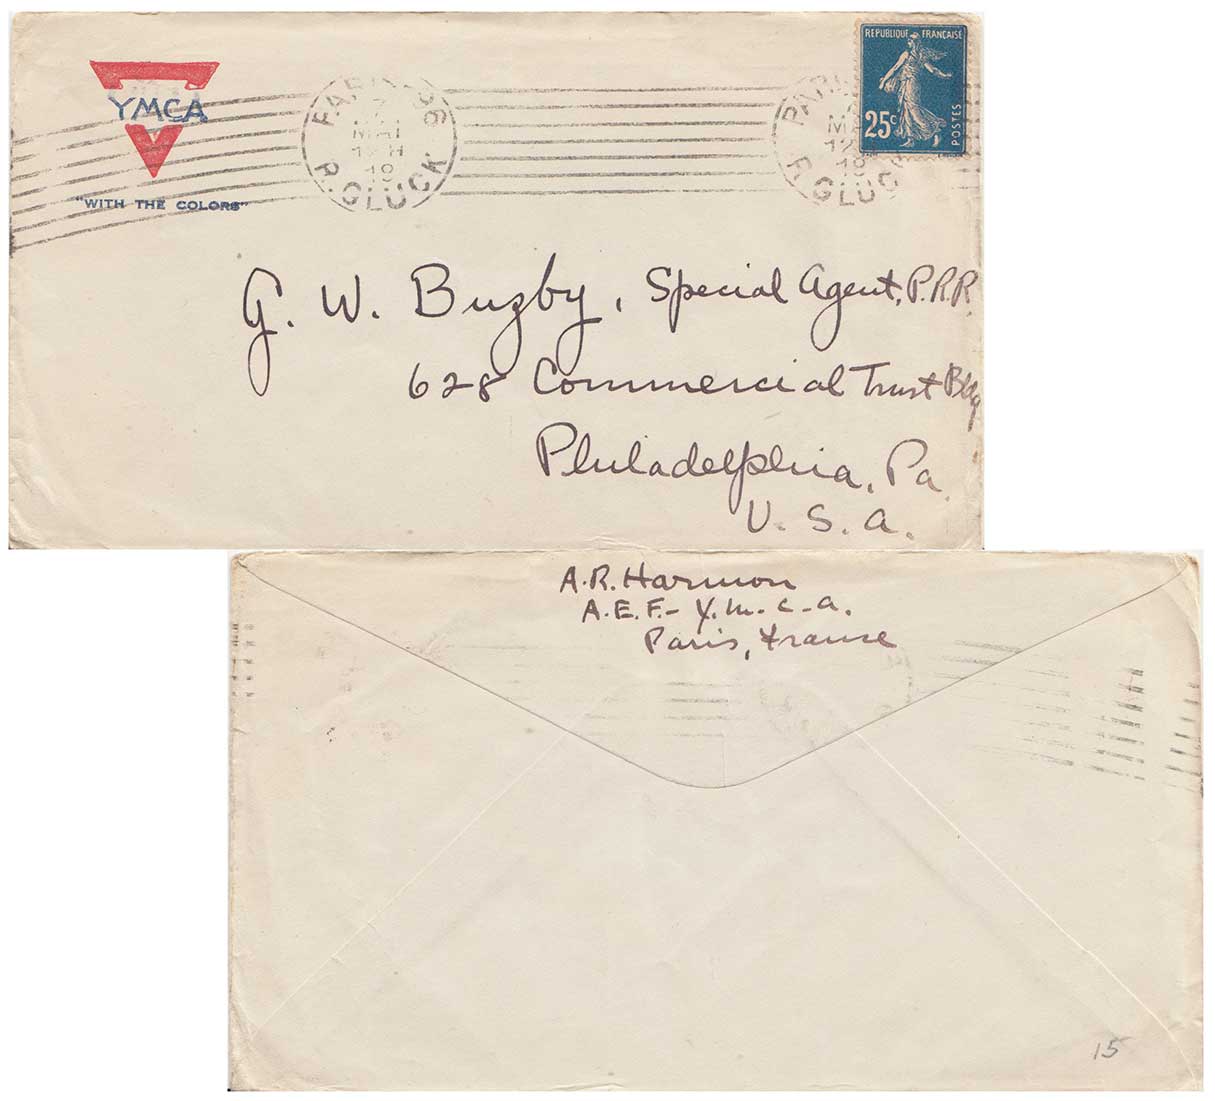 YMCA
"WITH THE COLORS"
PARIS 96
MAI
12 H
19
R. GLUCK
PARIS
MA
12
19
R. GLUCK
REPUBLIQUE FRANÇAISE
25c
POSTES
G. W. Buzby, Special Agent, P.R.R.
628 Commercial Trust Bldg
Philadelphia, Pa.
U. S. A.
A. R. Harmon
A. E. F. - Y. M. C. A.
Paris, France
15